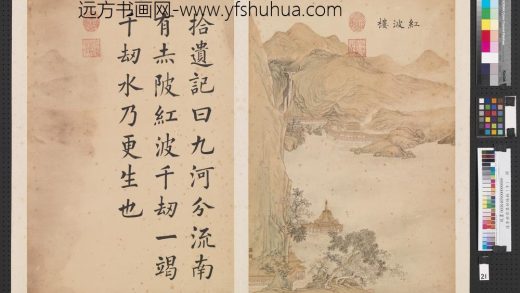 远方书画网-www.yfshuhua.com
紅波樓
拾遺記曰九河分流南
有赤陂紅波千劫一竭
千劫水乃更生也
21